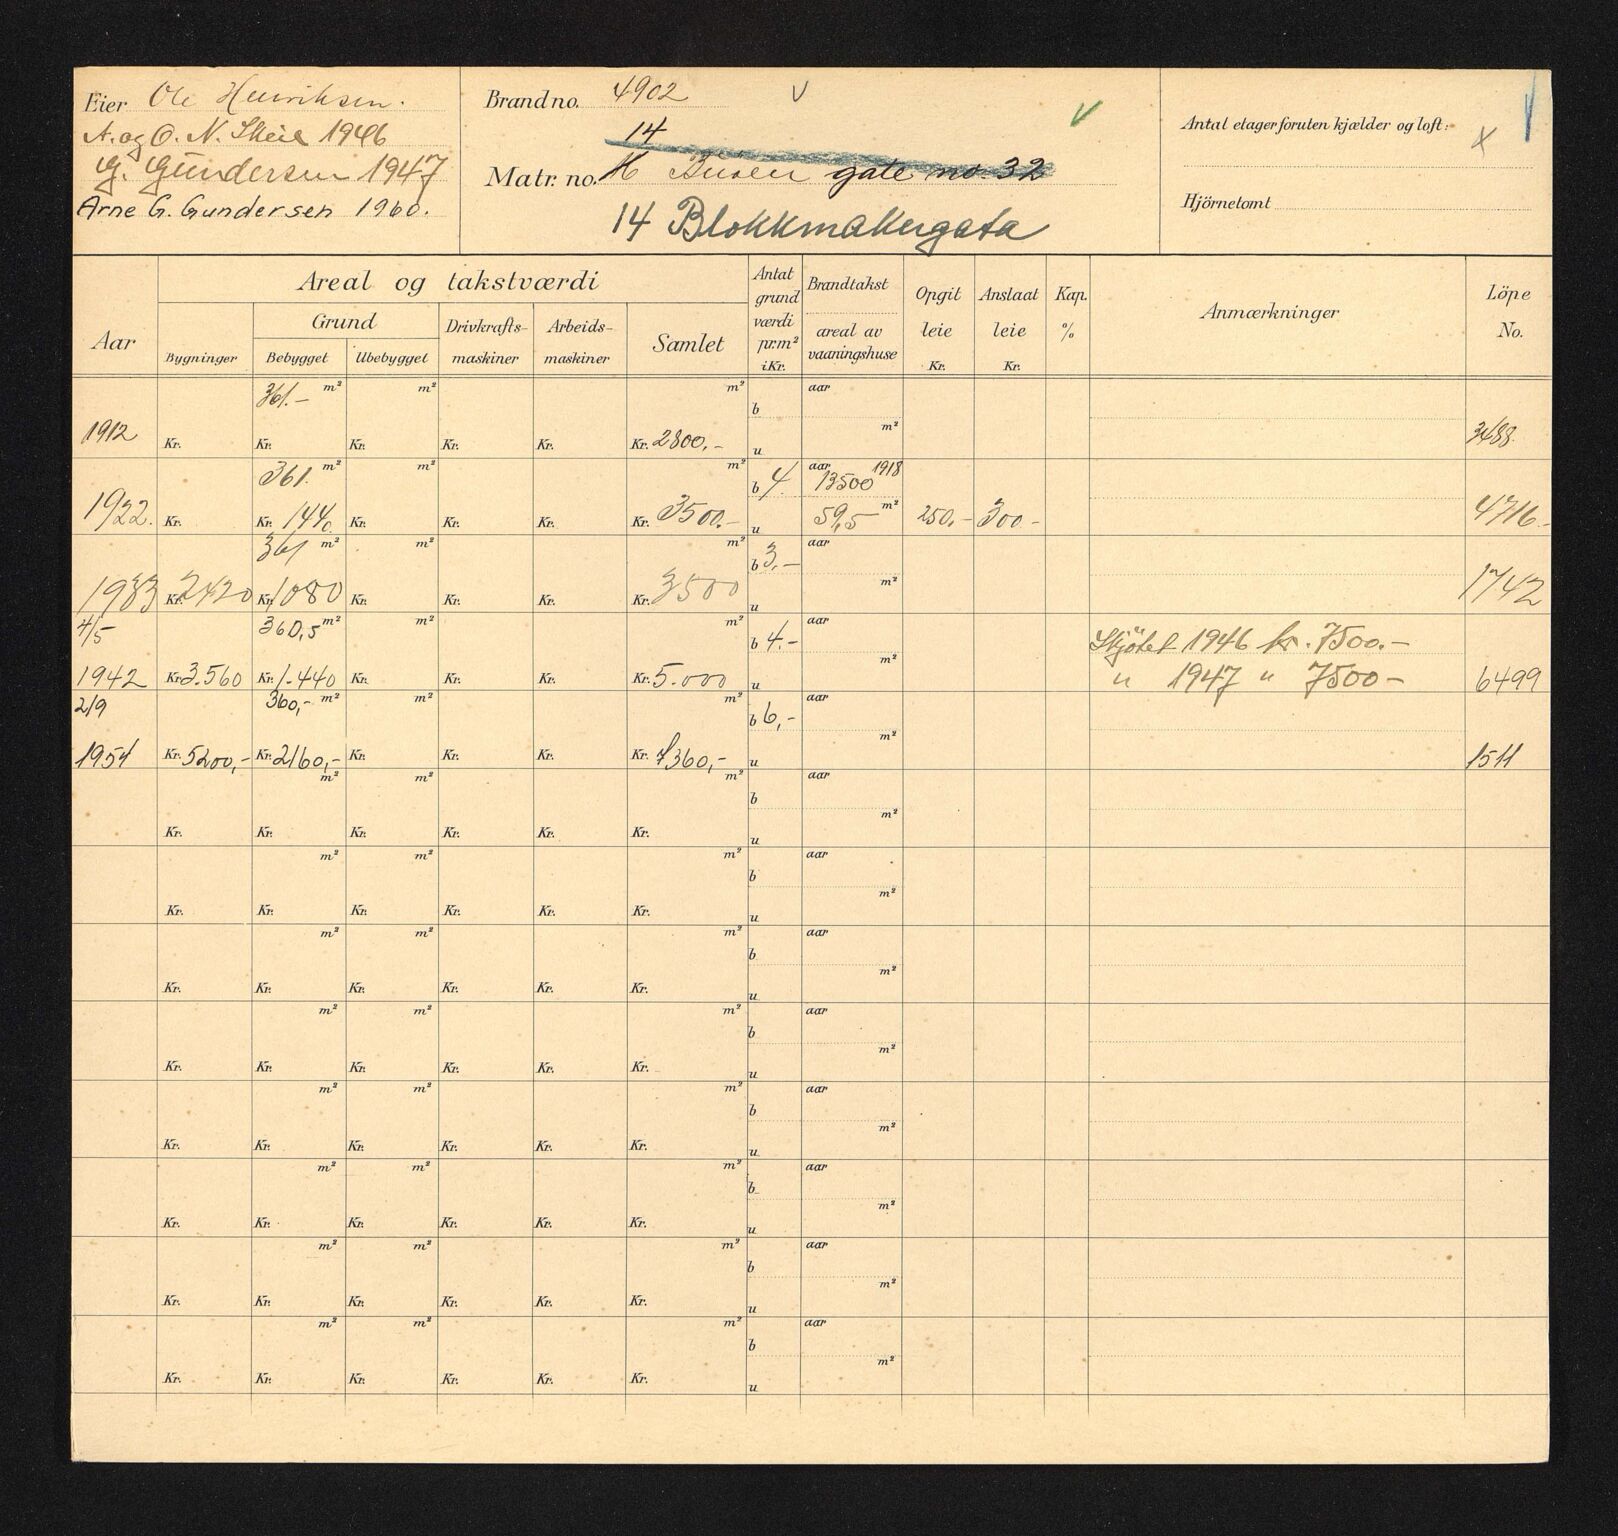 Eier Ole Henriksen.
A. og O. N. Skeie 1946
G. Gundersen 1947
Arne G. Gundersen 1960.
Brandno. 4902
14
Matr. no. gate no. 32
14 Blokkmakergata
Antal etager foruten kjælder og loft:
Hjörnetomt
Areal og takstværdi
Aar
Bygninger
Grund
Bebygget
Ubebygget
Drivkrafts-
maskiner
Arbeids-
maskiner
Samlet
Antat
grund
værdi
pr. m²
i Kr.
Brandtakst
areal av
vaaningshuse
Opgit
leie
Kr.
Anslaat
leie
Kr.
Kap.
%
Anmærkninger
Löpe
No.
361.– m² m² m² b aar
m²
1912 Kr. Kr. Kr. Kr. Kr. Kr. 2800,– u 3488.
361. m² m² m² b 4. aar 1918
13500
1922. Kr. Kr. 1440 Kr. Kr. Kr. Kr. 3500.– u 59,5 m² 250.– 300 – 4716.–
361 m² m² m² b 3.– aar
m²
1933 Kr. 2420 Kr. 1080 Kr. Kr. Kr. Kr. 3500 u 1742
4/5 360,5 m² m² m² b 4.– aar Skjötet 1946 kr. 7500.–
m²
1942 Kr. 3.560 Kr. 1.440 Kr. Kr. Kr. Kr. 5.000 u " 1947 " 7500 – 6499
2/9 360,– m² m² m² b 6,– aar
m²
1954 Kr. 5200,– Kr. 2160,– Kr. Kr. Kr. Kr. 7360,– u 1511
m² m² m² b aar
m²
Kr. Kr. Kr. Kr. Kr. Kr. u
m² m² m² b aar
m²
Kr. Kr. Kr. Kr. Kr. Kr. u
m² m² m² b aar
m²
Kr. Kr. Kr. Kr. Kr. Kr. u
m² m² m² b aar
m²
Kr. Kr. Kr. Kr. Kr. Kr. u
m² m² m² b aar
m²
Kr. Kr. Kr. Kr. Kr. Kr. u
m² m² m² b aar
m²
Kr. Kr. Kr. Kr. Kr. Kr. u
m² m² m² b aar
m²
Kr. Kr. Kr. Kr. Kr. Kr. u
m² m² m² b aar
m²
Kr. Kr. Kr. Kr. Kr. Kr. u